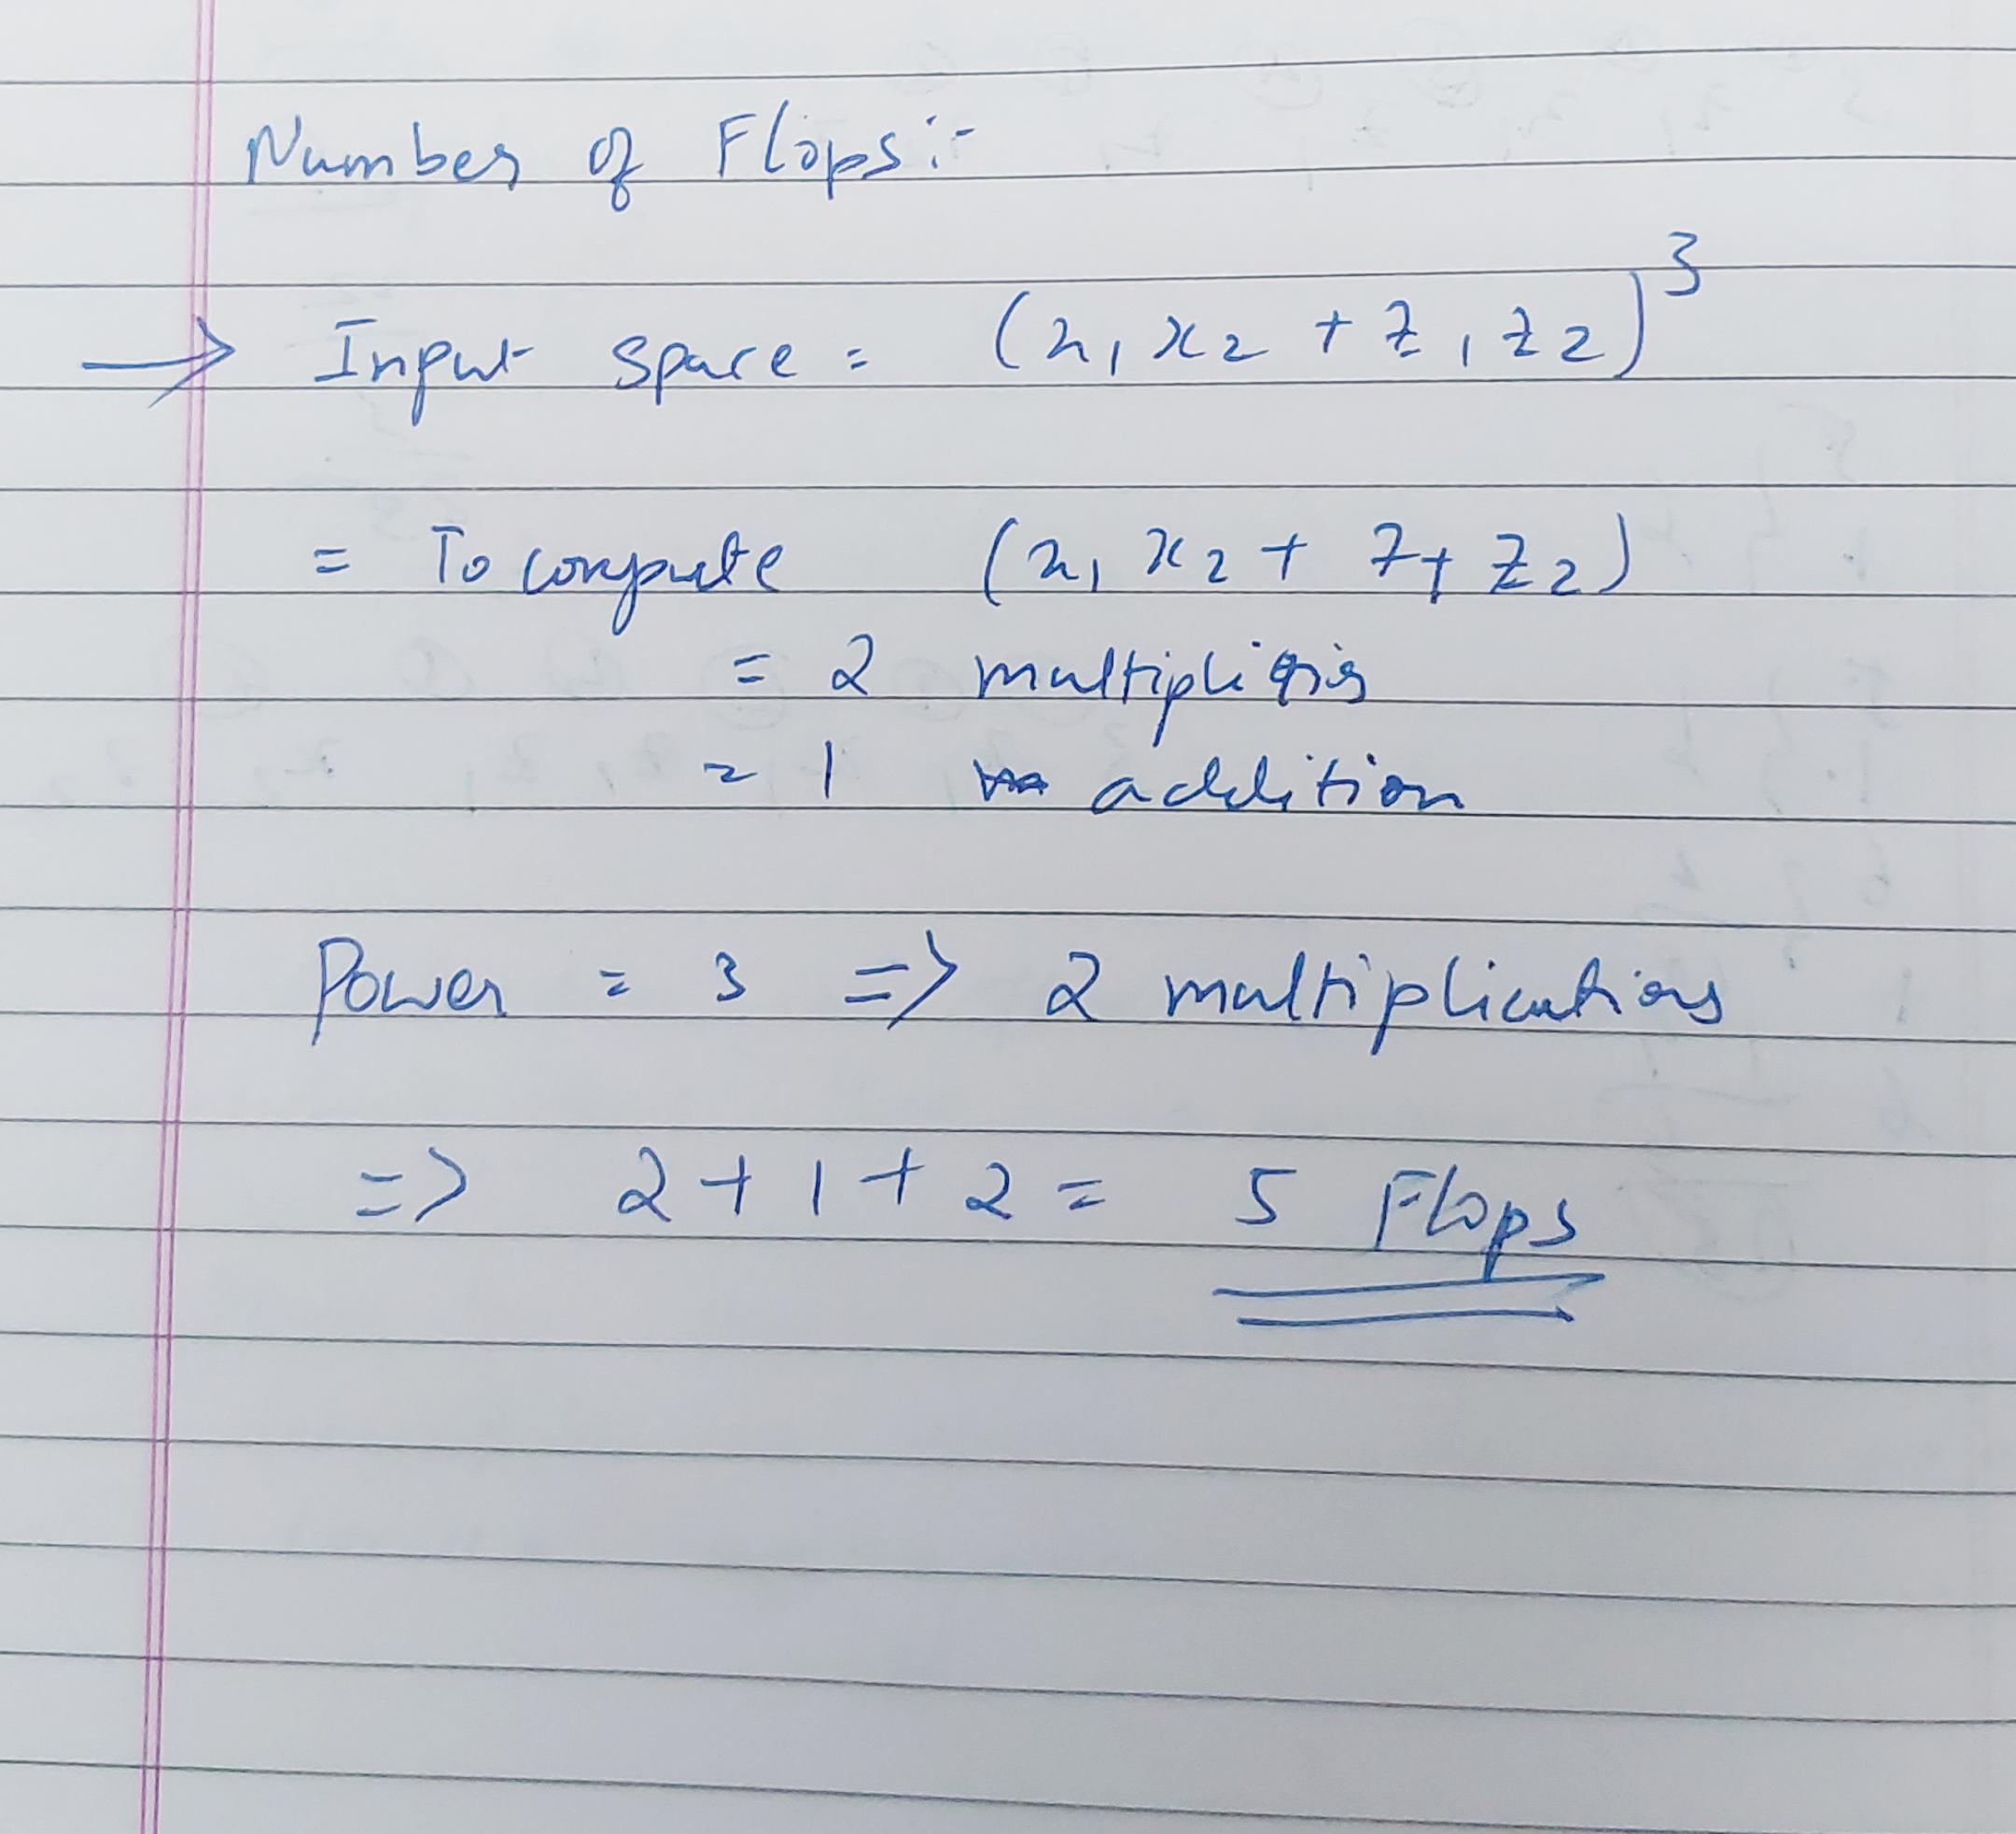 Number of Flops:-
→ Input space = (x₁ x₂ + z₁ z₂)³
= To compute (x₁ x₂ + z₁ z₂)
= 2
= 1 addition
Power = 3 => 2 multiplications
=> 2 + 1 + 2 = 5 Flops